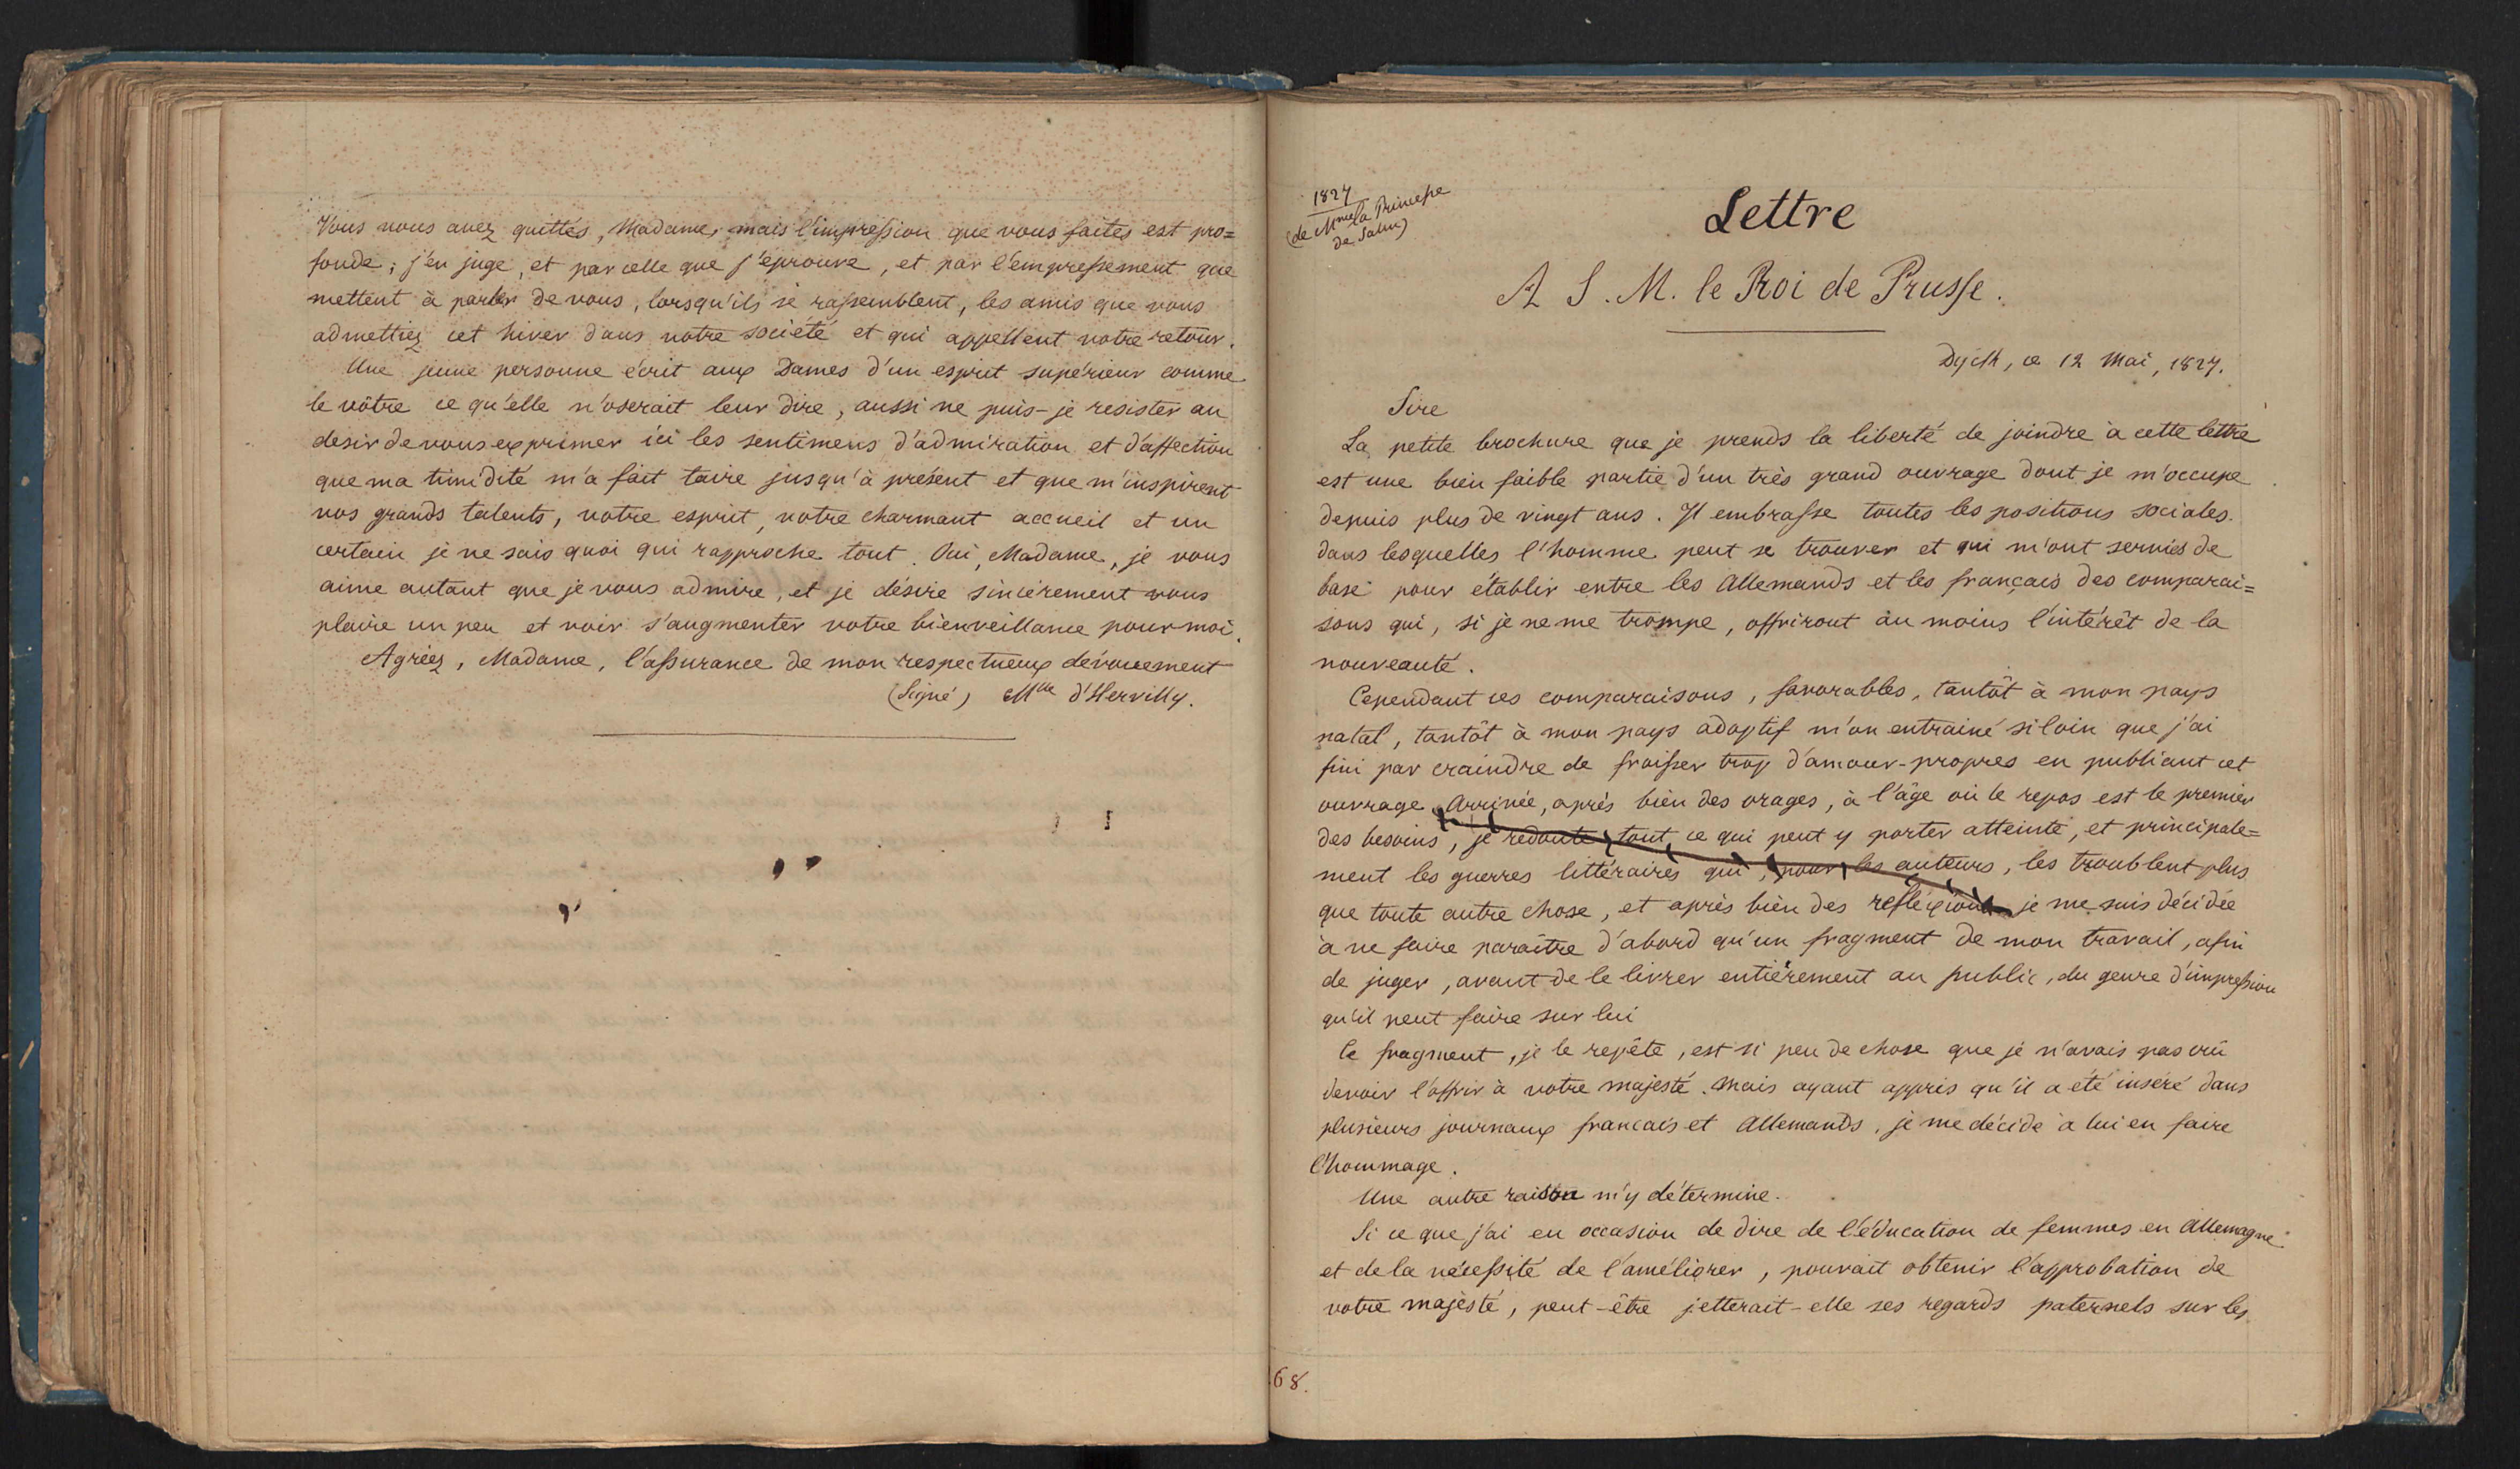 Vous nous avez quittés, Madame, mais l'impression que vous faites est pro=
fonde; j'en juge, et par celle que j'éprouve, et par l'empressement que
mettent à parler de vous, lorsqu'ils se rassemblent, les amis que vous
admettiez cet hiver dans votre société et qui appellent votre retour.
Une jeune personne écrit aux Dames d'un esprit supérieur comme
le vôtre ce qu'elle n'oserait leur dire, aussi ne puis-je resister au
desir de vous exprimer ici les sentimens d'admiration et d'affection
que ma timidité m'a fait taire jusqu'à présent et que m'inspirent
vos grands talents, votre esprit, votre charmant accueil et un
certain je ne sais quoi qui rapproche tout. Oui, Madame, je vous
aime autant que je vous admire, et je désire sincèrement vous
plaire un peu et voir s'augmenter votre bienveillance pour moi.
Agréez, Madame, l'assurance de mon respectueux dévouement
(Signé) Mlle d'Hervilly.
1827
(de Mme la Princesse
de Salm)
Lettre
A S. M. le Roi de Prusse.
Dyck, ce 12 Mai, 1827.
Sire
La petite brochure que je prends la liberté de joindre à cette lettre
est une bien faible partie d'un très grand ouvrage dont je m'occupe
depuis plus de vingt ans. Il embrasse toutes les positions sociales
dans lesquelles l'homme peut se trouver et qui m'ont servies de
base pour établir entre les Allemands et les français des comparai=
sons qui, si je ne me trompe, offriront au moins l'intérêt de la
nouveauté.
Cependant ces comparaisons, favorables, tantôt à mon pays
natal, tantôt à mon pays adoptif m'on entrainé si loin que j'ai
fini par craindre de froisser trop d'amour-propres en publiant cet
ouvrage. Arrivée, après bien des orages, à l'âge où le repos est le premier
des besoins, je redoute tout ce qui peut y porter atteinte, et principale=
ment les guerres littéraires qui, pour les auteurs, les troublent plus
que toute autre chose, et après bien des refléxions je me suis décidée
à ne faire paraître d'abord qu'un fragment de mon travail, afin
de juger, avant de le livrer entièrement au public, du genre d'impression
qu'il peut faire sur lui
Ce fragment, je le repête, est si peu de chose que je n'avais pas crû
devoir l'offrir à votre majesté. Mais ayant appris qu'il a été inséré dans
plusieurs journaux francais et Allemands, je me décide à lui en faire
l'hommage.
Une autre raison m'y détermine.
Si ce que j'ai eu occasion de dire de l'éducation de femmes en Allemagne
et de la nécessité de l'améliorer, pouvait obtenir l'approbation de
votre majesté, peut-être jetterait-elle ses regards paternels sur les
68.